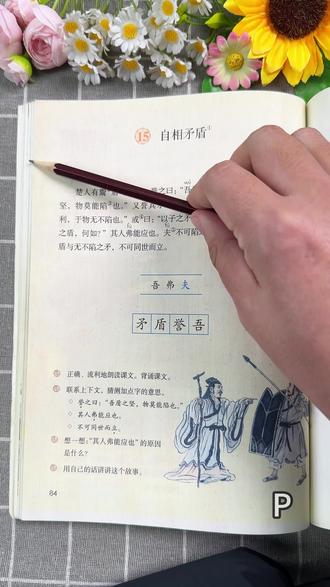 15 自相矛盾
楚人有鬻
誉之曰："吾
坚，物莫能陷也。"又誉其
利，于物无不陷也。"或曰："以子之矛
之盾，何如？"其人弗能应也。夫不可陷
盾与无不陷之矛，不可同世而立。
吾 弗 夫
矛 盾 誉 吾
正确、流利地朗读课文。背诵课文。
联系上下文，猜测加点字的意思。
◇ 誉之曰："吾盾之坚，物莫能陷也。"
◇ 其人弗能应也。
◇ 不可同世而立。
想一想："其人弗能应也"的原因
是什么？
用自己的话讲讲这个故事。
84
P